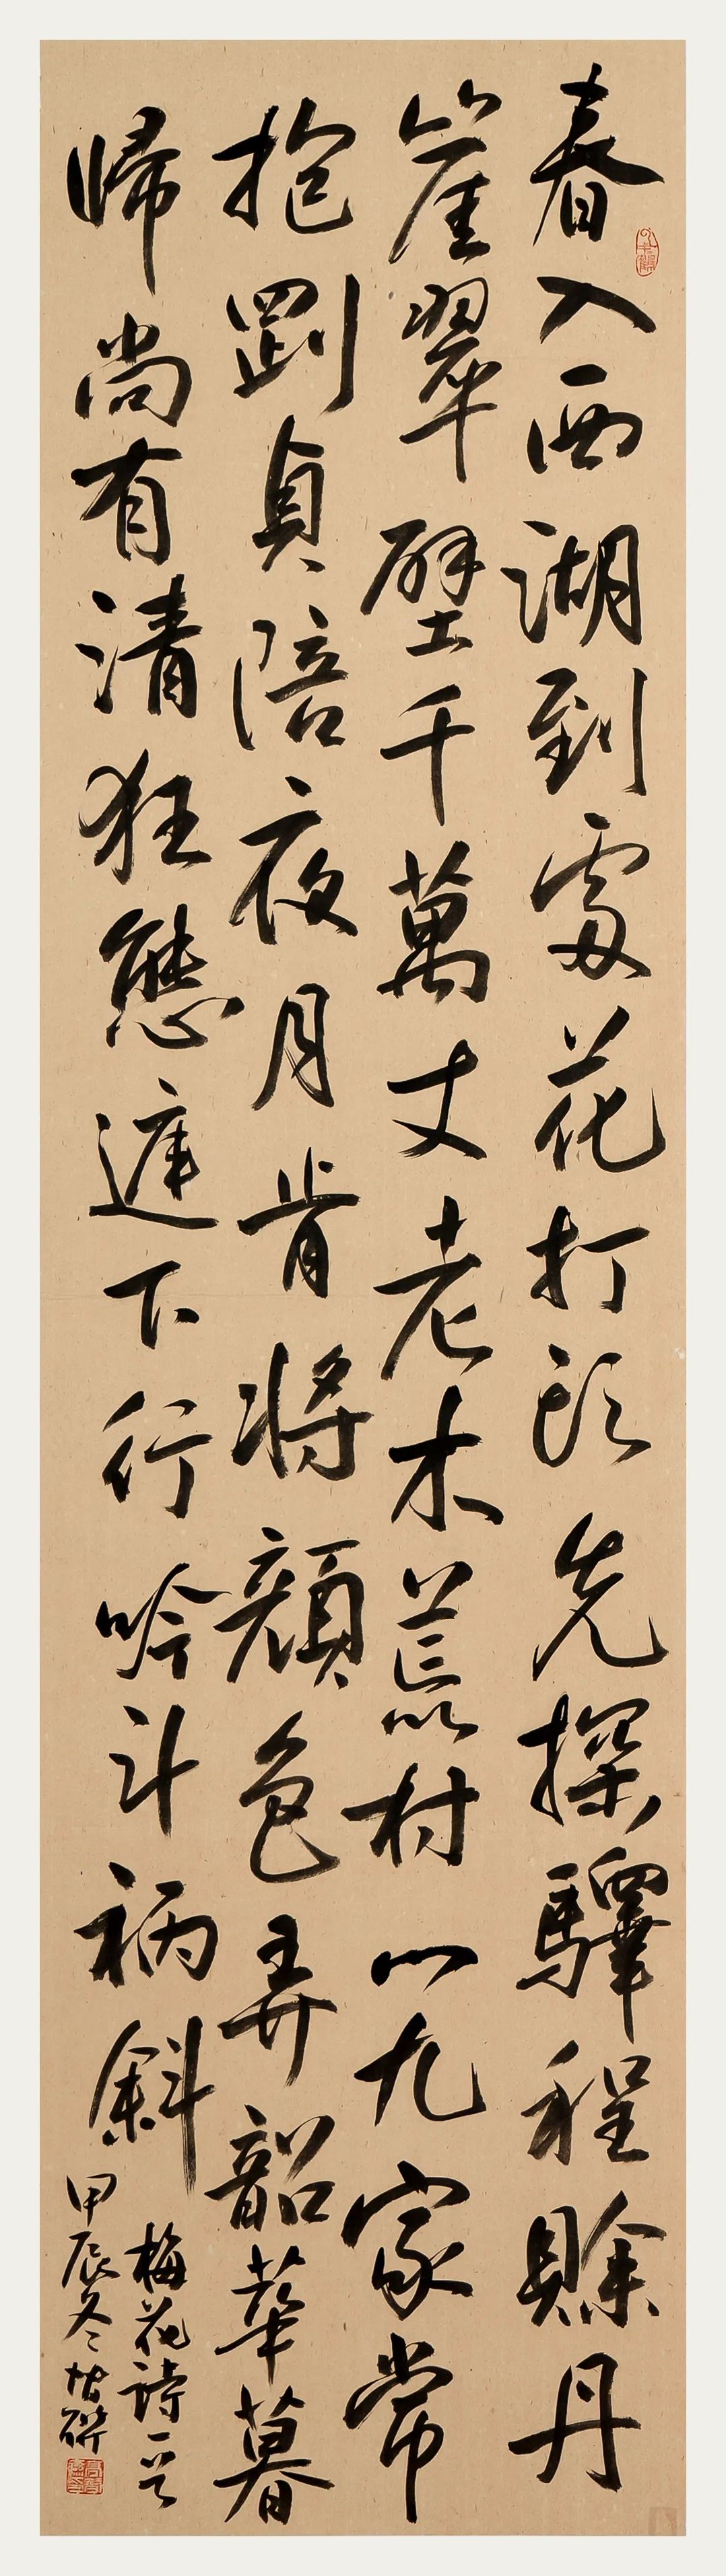 春入西湖到處花打頭先探驛程賒丹
崖翠壁千萬丈老木荒村八九家常
抱罰貞陪夜月肯將顏色弄韶華暮
歸尚有清狂態遮下行吟斗柄斜
梅花詩一首
甲辰冬